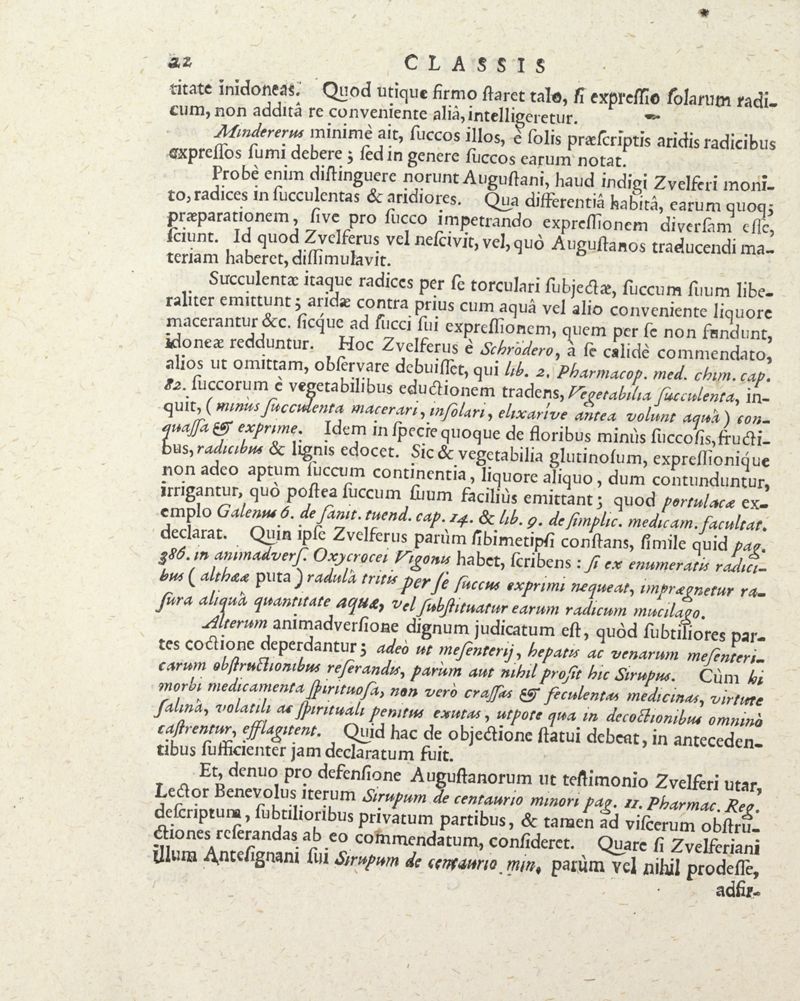 22 CLASSIS
titate inidoneas. Quod utique firmo ſtaret talo, ſi expreſſio ſolarum radi-
cum, non additâ re conveniente aliâ, intelligeretur.
Mindererus minimè ait, ſuccos illos, è ſolis præſcriptis aridis radicibus
expreſſos ſumi debere; ſed in genere ſuccos earum notat.
Probè enim diſtinguere norunt Auguſtani, haud indigi Zvelferi moni-
to, radices in ſucculentas & aridiores. Qua differentiâ habitâ, earum quoq;
præparationem, ſive pro ſucco impetrando expreſſionem diverſam eſſe,
ſciunt. Id quod Zvelferus vel neſcivit, vel, quò Auguſtanos traducendi ma-
teriam haberet, diſſimulavit.
Succulentæ itaque radices per ſe torculari ſubjectæ, ſuccum ſuum libe-
raliter emittunt; aridæ contra prius cum aquâ vel alio conveniente liquore
macerantur &c. ſicque ad ſucci ſui expreſſionem, quem per ſe non fundunt,
idoneæ redduntur. Hoc Zvelferus è Schrödero, à ſe calidè commendato,
alios ut omittam, obſervare debuiſſet, qui lib. 2. Pharmacop. med. chim. cap.
82. ſuccorum è vegetabilibus eductionem tradens, Vegetabilia ſucculenta, in-
quit, (minus ſucculenta macerari, inſolari, elixarive antea volunt aquâ) con-
quaſſa & exprime. Idem in ſpecie quoque de floribus minùs ſuccoſis, fructi-
bus, radicibus & lignis edocet. Sic & vegetabilia glutinoſum, expreſſionique
non adeo aptum ſuccum continentia, liquore aliquo, dum contunduntur,
irrigantur, quò poſtea ſuccum ſuum faciliùs emittant; quod portulacæ ex-
emplo Galenus 6. de ſanit. tuend. cap. 14. & lib. 9. de ſimplic. medicam. facultat.
declarat. Quin ipſe Zvelferus parùm ſibimetipſi conſtans, ſimile quid pag.
386. in animadverſ. Oxycrocei Vigonis habet, ſcribens: ſi ex enumeratis radici-
bus (altheæ puta) radulâ tritis per ſe ſuccus exprimi nequeat, imprægnetur ra-
ſura aliqua quantitate aquæ, vel ſubſtituatur earum radicum mucilago.
Alterum animadverſione dignum judicatum eſt, quòd ſubtiliores par-
tes coctione deperdantur; adeò ut meſenterij, hepatis ac venarum meſenteri-
carum obſtructionibus reſerandis, parùm aut nihil proſit hic Sirupus. Cùm hi
morbi medicamenta ſpirituoſa, non verò craſſas & feculentas medicinas, virtute
ſalinâ, volatili ac ſpirituali penitus exutas, utpote qua in decoctionibus omninò
caſtrentur, efflagitent. Quid hac de objectione ſtatui debeat, in anteceden-
tibus ſufficienter jam declaratum fuit.
Et, denuo pro defenſione Auguſtanorum ut teſtimonio Zvelferi utar,
Lector Benevolus iterum Sirupum de centaurio minori pag. 11. Pharmac. Reg.
deſcriptum, ſubtilioribus privatum partibus, & tamen ad viſcerum obſtru-
ctiones reſerandas ab eo commendatum, conſideret. Quare ſi Zvelferiani
illum Anteſignani ſui Sirupum de centaurio min. parùm vel nihil prodeſſe,
adfir-